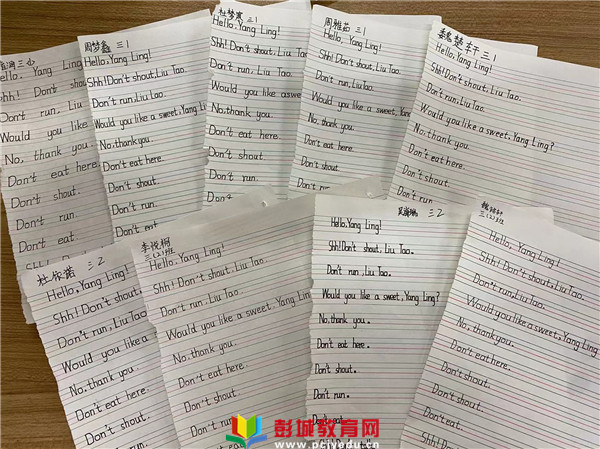 三1
Hello, Yang Ling!
Shh! Don't shou
Don't run, Liu
Would you like
No, thank you.
Don't eat here
Don't shout.
Don't run.
Don't eat.
周梦鑫 三1
Hello, Yang Ling!
Shh! Don't shout, Liu Tao.
Don't run, Liu Tao.
Would you like a sweet, Yang Ling
No, thank you.
Don't eat here.
Don't shout.
Don't run.
三1
Hello, Yang Ling!
Shh! Don't shout, Liu Tao.
Don't run, Liu Tao.
Would you like a swee
No, thank you.
Don't eat here.
Don't shout.
Don't run.
周雅茹 三1
Hello, Yang Ling!
Shh! Don't shout, Liu Tao.
Don't run, Liu Tao.
Would you like a sweet, Yang Ling?
No, thank you.
Don't eat here.
Don't shout.
Don't run.
魏楚轩 三1
Hello, Yang Ling!
Shh! Don't shout, Liu Tao.
Don't run, Liu Tao.
Would you like a sweet, Yang Ling?
No, thank you.
Don't eat here.
Don't shout.
Don't run.
杜依诺 三2
Hello, Yang Ling!
Shh! Don't shout,
Don't run, Liu Tao
Would you like a
No, thank you.
Don't eat here.
Don't shout.
Don't run.
Don't eat.
李悦桐
三(2)班
Hello, Yang Ling!
Shh! Don't shout, Liu Tao.
Don't run, Liu Tao.
Would you like a sweet, Yang Ling
No, thank you.
Don't eat here.
Don't shout.
Don't run.
三2
Hello, Yang Ling!
Shh! Don't shout, Liu Tao.
Don't run, Liu Tao.
Would you like a sweet, Yang Ling?
No, thank you.
Don't eat here.
Don't shout.
Don't run.
Don't eat.
三(2)班
Hello, Yang Ling!
Shh! Don't shout, Liu Tao.
Don't run, Liu Tao.
Would you like a sweet, Yang Ling
No, thank you.
Don't eat here.
Don't shout.
Don't run.
Don't eat.
Shh! Don't
彭城教育网
www.pcjyedu.cn